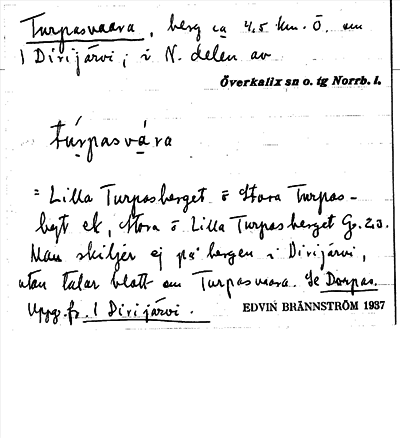 Turpasvaara, berg ca 4,5 km. Ö. om
1 Dirijärvi, i N. delen av
Överkalix sn o. tg Norrb. l.
túrpasvàra
= Lilla Turpasberget o Stora Turpas-
bgt ek, Stora o Lilla Turpasberget Gs.
Man skiljer ej på bergen i Dirijärvi,
utan talar blott om Turpasvaara. Se Dorpas.
Uppg. fr. 1 Dirijärvi.
EDVIN BRÄNNSTRÖM 1937